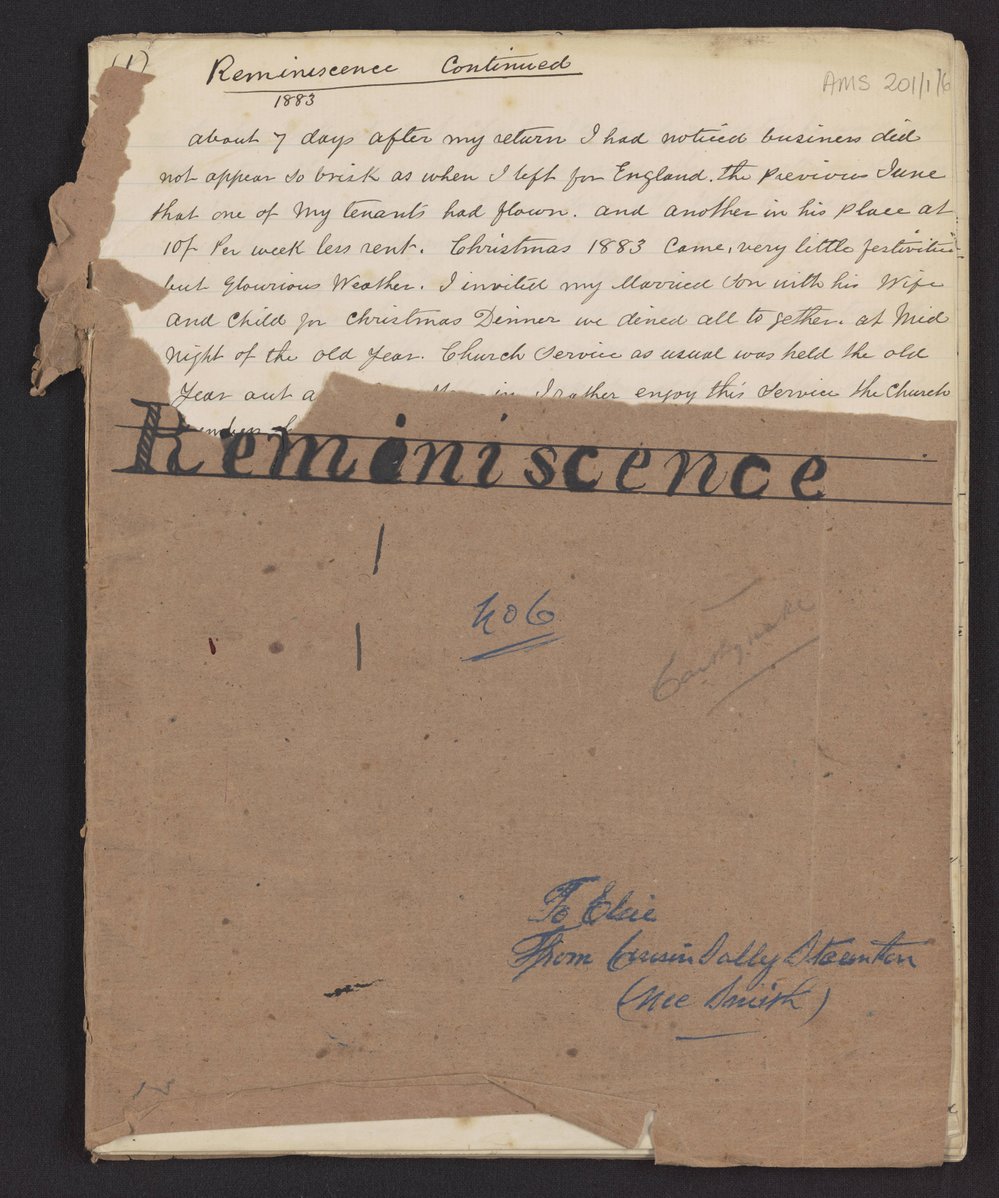 (1)
Reminiscence Continued
AMS 201/1/6
1883
about 7 days after my return I had noticed business did
not appear so brisk as when I left for England. the Previous June
that one of my tenants had flown. and another in his Place at
10/- Per week less rent. Christmas 1883 Came, very little festivities
but Glourious Weather. I invited my Married Son with his Wife
and Child for Christmas Dinner we dined all to gether. at Mid
night of the old Year. Church Service as usual was held the old
Year out a in I rather enjoy this Service the Church
Reminiscence
No 6
Earthquake
To Elsie
From Cousin Sally Staunton
(Nee Smith)